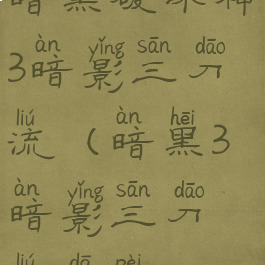 暗黑破坏神
àn yǐng sān dāo
3暗影三刀
liú àn hēi
流(暗黑3
àn yǐng sān dāo
暗影三刀
liú dā pèi